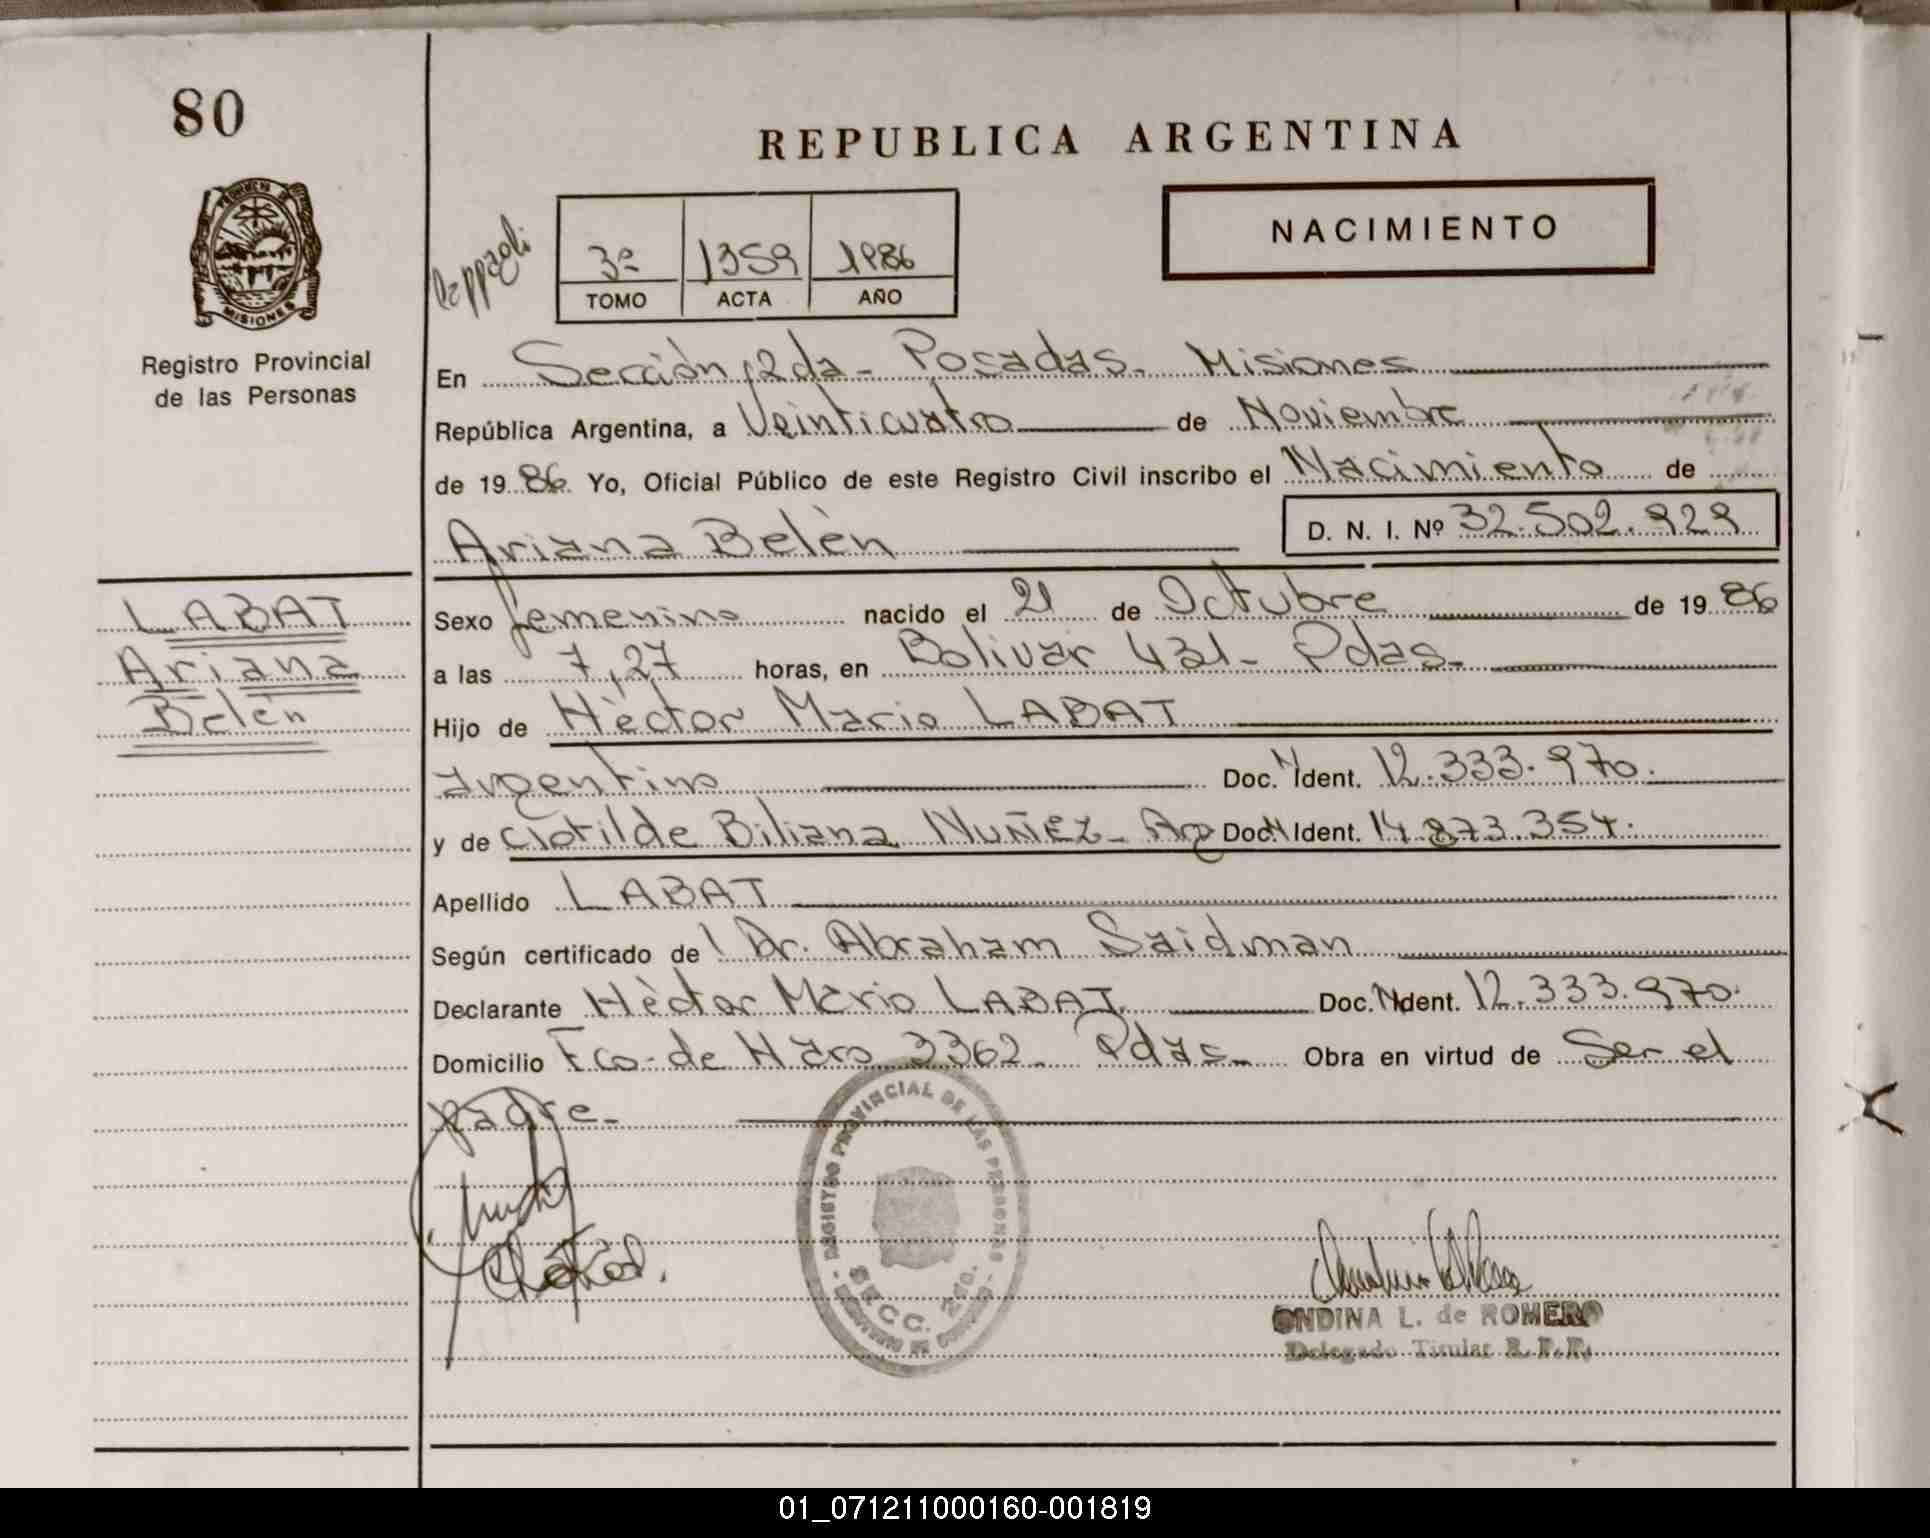 80
REPUBLICA ARGENTINA
NACIMIENTO
PROVINCIA DE
MISIONES
Registro Provincial
de las Personas
3º 1359 1986
TOMO ACTA AÑO
En Sección 2da - Posadas - Misiones
República Argentina, a Veinticuatro de Noviembre
de 1986 Yo, Oficial Público de este Registro Civil inscribo el Nacimiento de
Ariana Belèn D. N. I. Nº 32.502.929
LABAT
Ariana
Belèn
Sexo femenino nacido el 21 de Octubre de 1986
a las 7,27 horas, en Bolivar 431 - Pdas -
Hijo de Hèctor Mario LABAT
argentino Doc. N Ident. 12.333.970.
y de Clotilde Biliana NUÑEZ - Ag Doc N Ident. 14.873.354.
Apellido LABAT
Según certificado de Dr. Abraham Saidman
Declarante Hèctor Mario LABAT. Doc. N Ident. 12.333.970.
Domicilio Fco. de Haro 3362 - Pdas - Obra en virtud de Ser el
padre -
REGISTRO PROVINCIAL DE LAS PERSONAS
SECC. 2da.
ONDINA L. de ROMERO
Delegado Titular R.P.P.
01_071211000160-001819